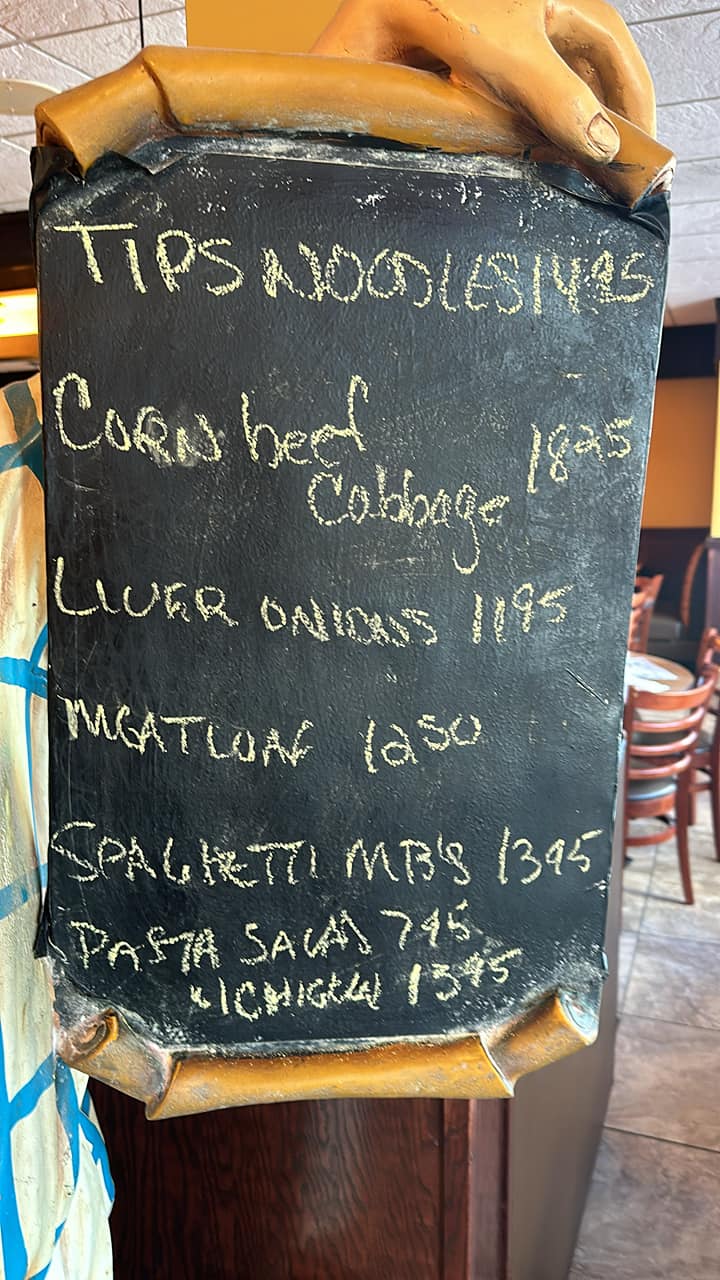 TIPS NOODLES 1495
CORN beef 1825
Cabbage
LIVER ONIONS 1195
MEATLOAF 1250
SPAGHETTI MB'S 1395
PASTA SALAD 795
W/CHICKEN 1395